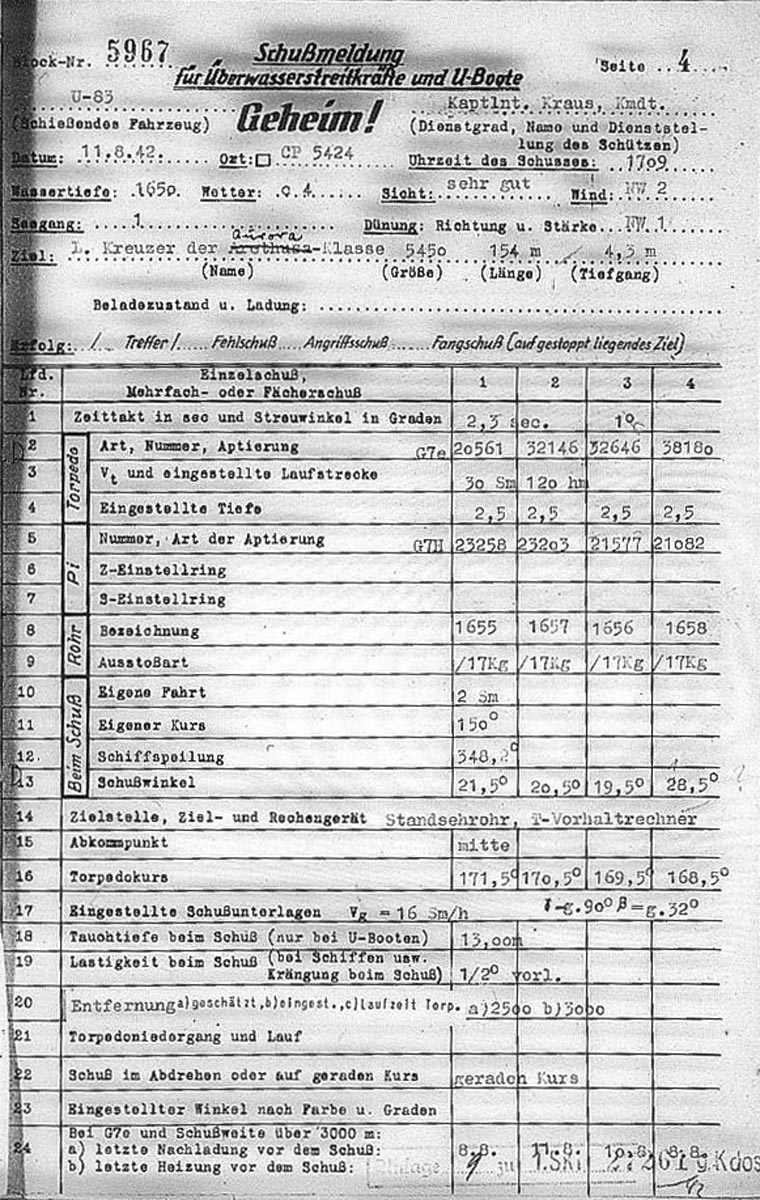 Block-Nr. 5967 Schußmeldung Seite 4
für Überwasserstreitkräfte und U-Boote
U-83 Geheim! Kaptlnt. Kraus, Kmdt.
(Schießendes Fahrzeug) (Dienstgrad, Name und Dienststel-
lung des Schützen)
Datum: 11.8.42. Ort: CP 5424 Uhrzeit des Schusses: 1709
Wassertiefe: 1650. Wetter: c 4. Sicht: sehr gut Wind: NW 2
Seegang: 1 Dünung: Richtung u. Stärke NW 1
Aurora
Ziel: L. Kreuzer der Arethusa-Klasse 5450 154 m / 4,3 m
(Name) (Größe) (Länge) (Tiefgang)
Beladezustand u. Ladung:
Erfolg: / Treffer / Fehlschuß Angriffsschuß Fangschuß (auf gestoppt liegendes Ziel)
Lfd. Nr. Einzelschuß, Mehrfach- oder Fächerschuß 1 2 3 4
1 Zeittakt in sec und Streuwinkel in Graden 2,3 sec. 1°
Torpedo
2 Art, Nummer, Aptierung G7e 20561 32146 32646 38180
3 Vt und eingestellte Laufstrecke 30 Sm 120 hm
4 Eingestellte Tiefe 2,5 2,5 2,5 2,5
Pi
5 Nummer, Art der Aptierung G7H 23258 23203 21577 21082
6 Z-Einstellring
7 S-Einstellring
Rohr
8 Bezeichnung 1655 1657 1656 1658
9 Ausstoßart /17Kg /17Kg /17Kg /17Kg
Beim Schuß
10 Eigene Fahrt 2 Sm
11 Eigener Kurs 150°
12 Schiffspeilung 348,2°
13 Schußwinkel 21,5° 20,5° 19,5° 28,5° ?
14 Zielstelle, Ziel- und Rechengerät Standsehrohr, T-Vorhaltrechner
15 Abkommpunkt mitte
16 Torpedokurs 171,5° 170,5° 169,5° 168,5°
17 Eingestellte Schußunterlagen Vg = 16 Sm/h γ=g.90° β=g.32°
18 Tauchtiefe beim Schuß (nur bei U-Booten) 13,00m
19 Lastigkeit beim Schuß (bei Schiffen usw. Krängung beim Schuß) 1/2° vorl.
20 Entfernung a) geschätzt, b) eingest., c) Laufzeit Torp. a)2500 b)3000
21 Torpedoniedergang und Lauf
22 Schuß im Abdrehen oder auf geraden Kurs geraden Kurs
23 Eingestellter Winkel nach Farbe u. Graden
24 Bei G7e und Schußweite über 3000 m:
a) letzte Nachladung vor dem Schuß: 8.8. 11.8. 10.8. 8.8.
b) letzte Heizung vor dem Schuß:
Anlage 9 zu 1.Skl. g.Kdos